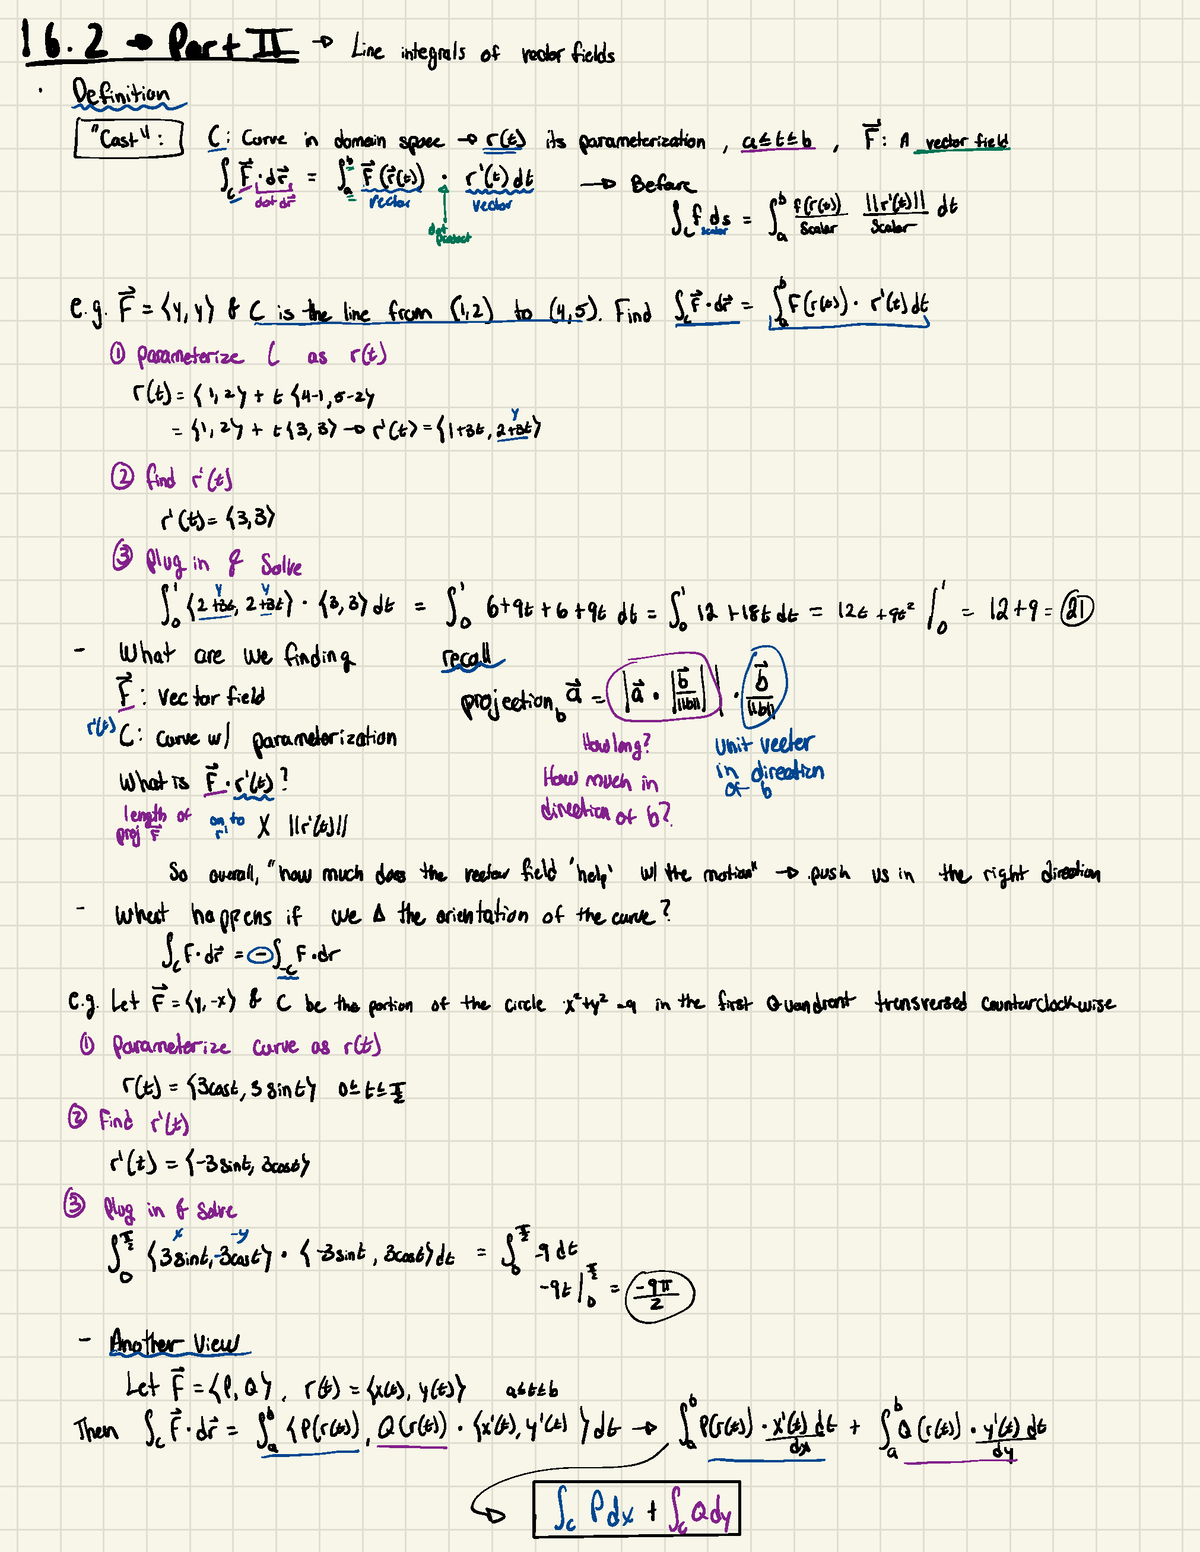 16.2 → Part II → Line integrals of vector fields
· Definition
"Cast": C: Curve in domain space → r(t) its parameterization, a≤t≤b, F⃗: A vector field
∫_C F⃗·dr⃗ = ∫_a^b F⃗(r⃗(t)) · r'(t) dt → Before
dot dr⃗ vector dot product vector
∫_C f ds = ∫_a^b f(r(t)) ||r'(t)|| dt
scalar Scalar Scalar
e.g. F⃗ = ⟨y, y⟩ & C is the line from (1,2) to (4,5). Find ∫_C F⃗·dr⃗ = ∫_a^b F(r(t)) · r'(t) dt
① parameterize C as r(t)
r(t) = ⟨1,2⟩ + t ⟨4-1, 5-2⟩
y
= ⟨1,2⟩ + t⟨3,3⟩ → r'(t) = ⟨1+3t, 2+3t⟩
② find r'(t)
r'(t) = ⟨3,3⟩
③ Plug in & Solve
y y
∫_0^1 ⟨2+3t, 2+3t⟩ · ⟨3,3⟩ dt = ∫_0^1 6+9t+6+9t dt = ∫_0^1 12+18t dt = 12t+9t² |_0^1 = 12+9 = 21
- What are we finding
recall
F⃗: vector field
projection_b a⃗ = |a⃗ · |b⃗/||b||| | · b⃗/||b||
r'(t) C: curve w/ parameterization
How long? Unit vector
What is F⃗·r'(t)?
How much in in direction
direction of b? of b
length of proj F⃗ on to r' X ||r'(t)||
So overall, "how much does the vector field 'help' w/ the motion" → push us in the right direction
- What happens if we Δ the orientation of the curve?
∫_C F·dr⃗ = -∫_{-C} F·dr
e.g. Let F⃗ = ⟨y, -x⟩ & C be the portion of the circle x²+y²=9 in the first Quandrant transversed counterclockwise
① Parameterize curve as r(t)
r(t) = ⟨3cost, 3sint⟩ 0≤t≤π/2
② Find r'(t)
r'(t) = ⟨-3sint, 3cost⟩
③ Plug in & Solve
x -y
∫_0^{π/2} ⟨3sint, -3cost⟩ · ⟨-3sint, 3cost⟩ dt = ∫_0^{π/2} -9 dt
-9t |_0^{π/2} = -9π/2
- Another View
Let F⃗ = ⟨P, Q⟩, r(t) = ⟨x(t), y(t)⟩ a≤t≤b
Then ∫_C F⃗·dr⃗ = ∫_a^b ⟨P(r(t)), Q(r(t)) · ⟨x'(t), y'(t)⟩ dt → ∫_a^b P(r(t)) · x'(t) dt + ∫_a^b Q(r(t)) · y'(t) dt
dx dy
∫_C Pdx + ∫_C Qdy